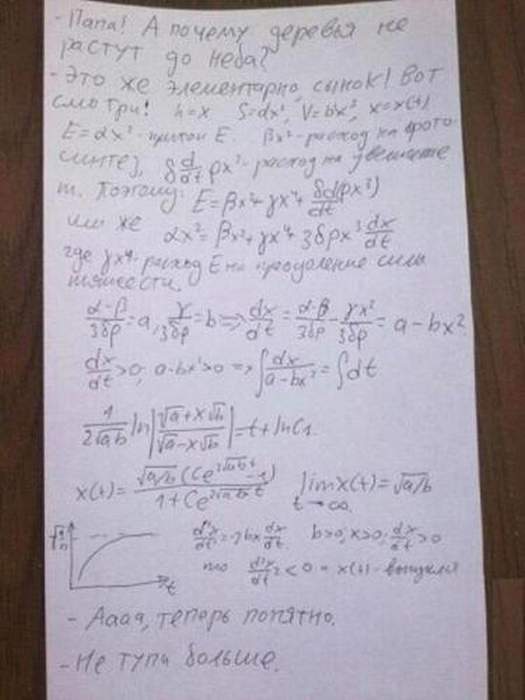 - Папа! А почему деревья не
растут до неба?
- Это же элементарно, сынок! Вот
смотри! h=x S=dx², V=bx³, x=x(t)
E=αx²-приток E. βx²-расход на фото-
синтез, δ d/dt ρx³-расход на увеличение
m. Поэтому: E=βx²+γx⁴+δd(ρx³)/dt
или же αx²=βx²+γx⁴+3δρx² dx/dt
где γx⁴-расход E на преодоление силы
тяжести.
(α-β)/3δρ=a, γ/3δρ=b ⇒ dx/dt=(α-β)/3δρ-γx²/3δρ=a-bx².
dx/dt>0; a-bx²>0 ⇒ ∫dx/(a-bx²)=∫dt
1/(2√ab) ln|(√a+x√b)/(√a-x√b)|=t+lnC1.
x(t)=√a/b(Ce^(2√ab t)-1)/(1+Ce^(2√ab t)) lim x(t)=√a/b
t→∞.
√a/b d²x/dt²=-2bx dx/dt. b>0; x>0; dx/dt>0
то d²x/dt²<0 - x(t)-выпукла
t
- Аааа, теперь понятно.
- Не тупи больше.